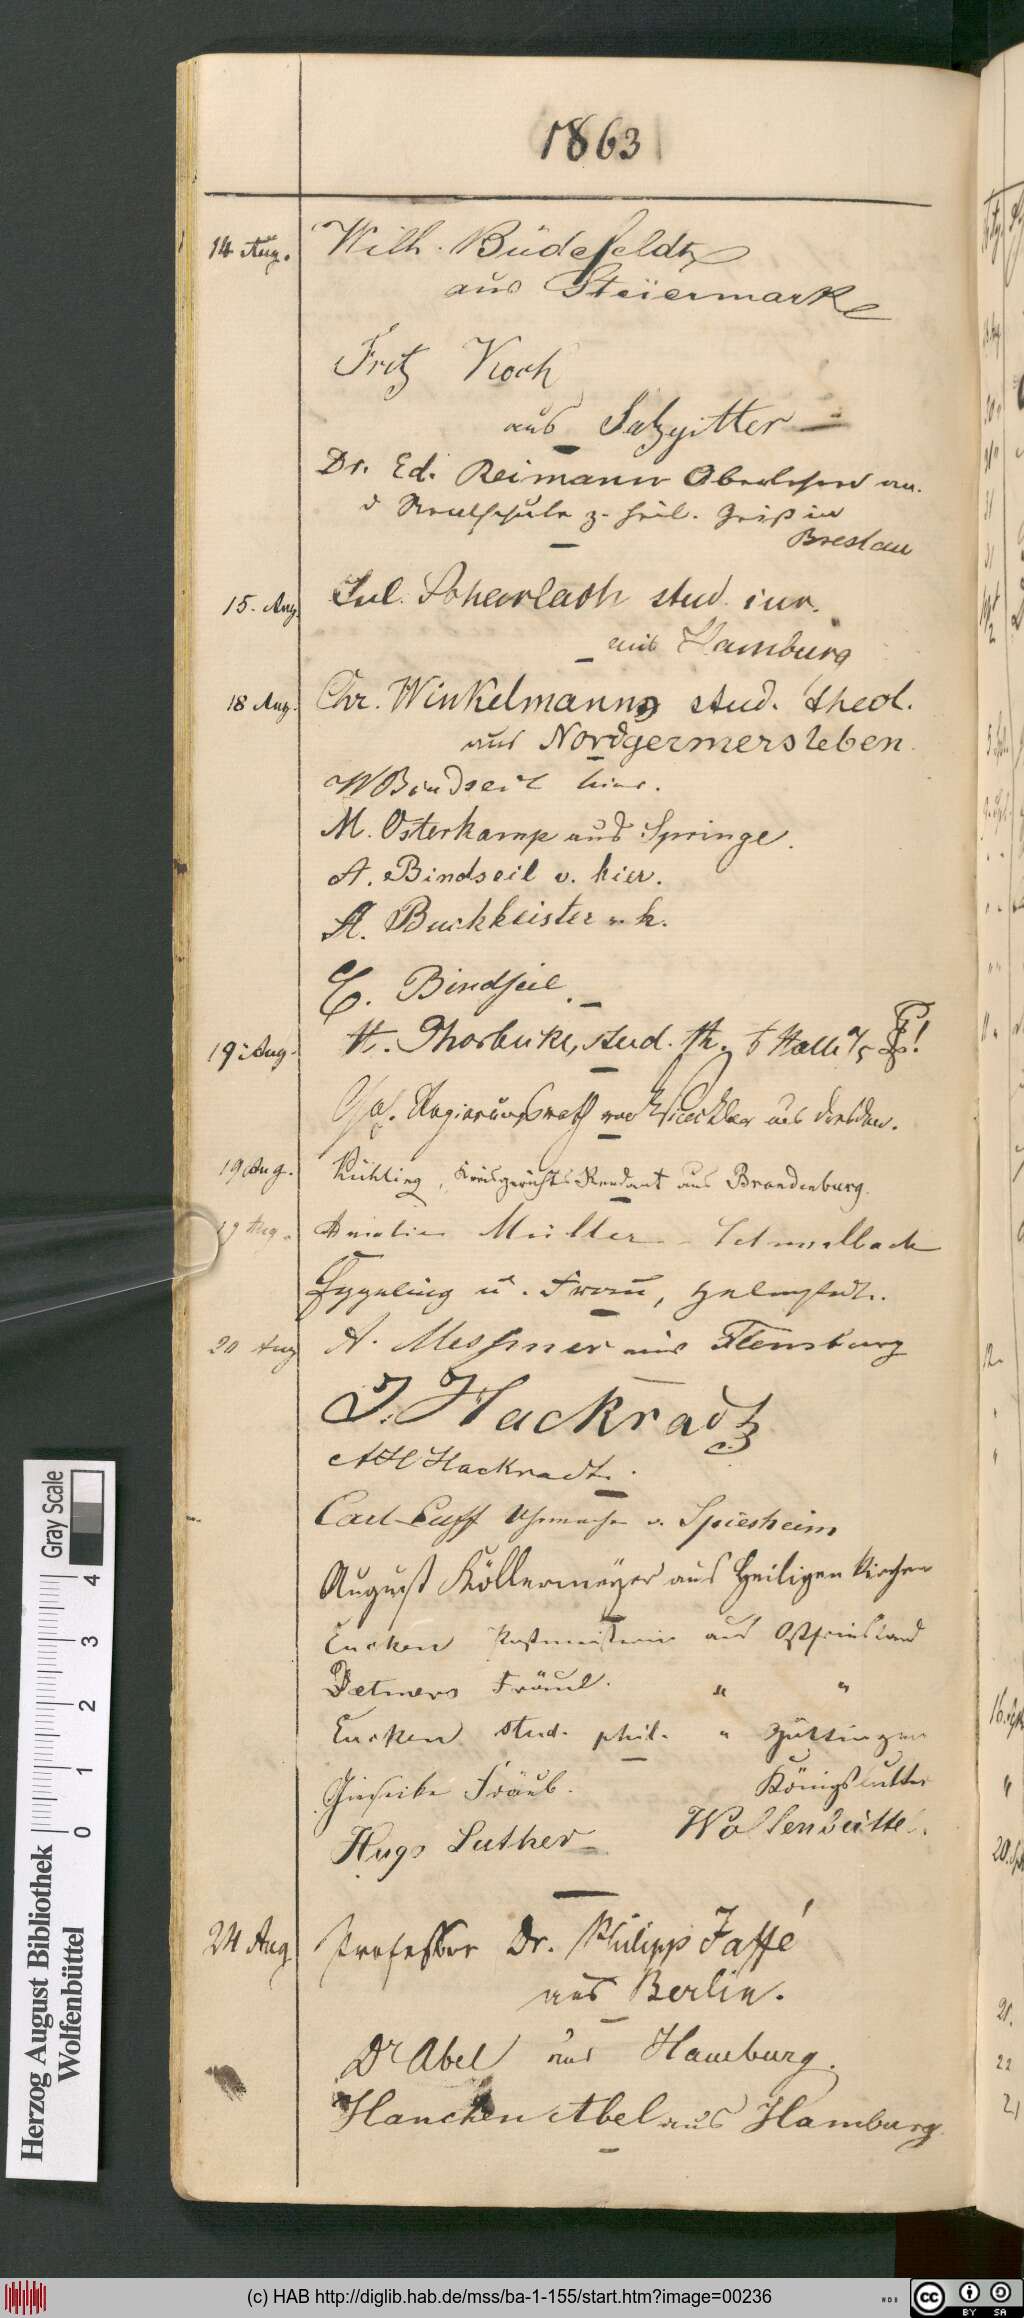 1863
14 Aug. Wilh. Büdefeldt
aus Steiermark
Fritz Koch
aus Salzgitter
Dr. Ed. Reimann Oberlehrer an
d Realschule z. heil. Geist in
Breslau
15. Aug. Jul. Scharlach stud. iur.
aus Hamburg
18 Aug. Chr. Winkelmann stud. theol.
aus Nordgermersleben.
W Bindseil hier.
M. Osterkamp aus Springe.
A. Bindseil v. hier.
A. Buchheister v. h.
C. Bindseil.
19. Aug. H. Thorbecke, stud. Halle a/S
Regierungsrath von aus Dresden.
19 Aug. Kühling, Kreisgerichts Rendant aus Brandenburg.
19 Aug. Müller
Eggeling u. Frau, Helmstedt.
20 Aug A. Messner aus Flensburg
J. Hackradt
AH Hackradt.
Carl Cuff Uhrmacher v. Spiesheim
August Köllermeyer aus Heiligenkirchen
Eucken Postmeisterin aus Ostfriesland
Detmers Fräul. " "
Eucken stud. phil. " Göttingen
Giesecke Fräul. Königslutter
Hugo Luther Wolfenbüttel.
24 Aug Professor Dr. Philipp Jaffé
aus Berlin.
Dr Abel aus Hamburg.
Hanchen Abel aus Hamburg.
Herzog August Bibliothek
Wolfenbüttel
0 1 2 3 4
Gray Scale
(c) HAB http://diglib.hab.de/mss/ba-1-155/start.htm?image=00236
WDB
CC BY SA